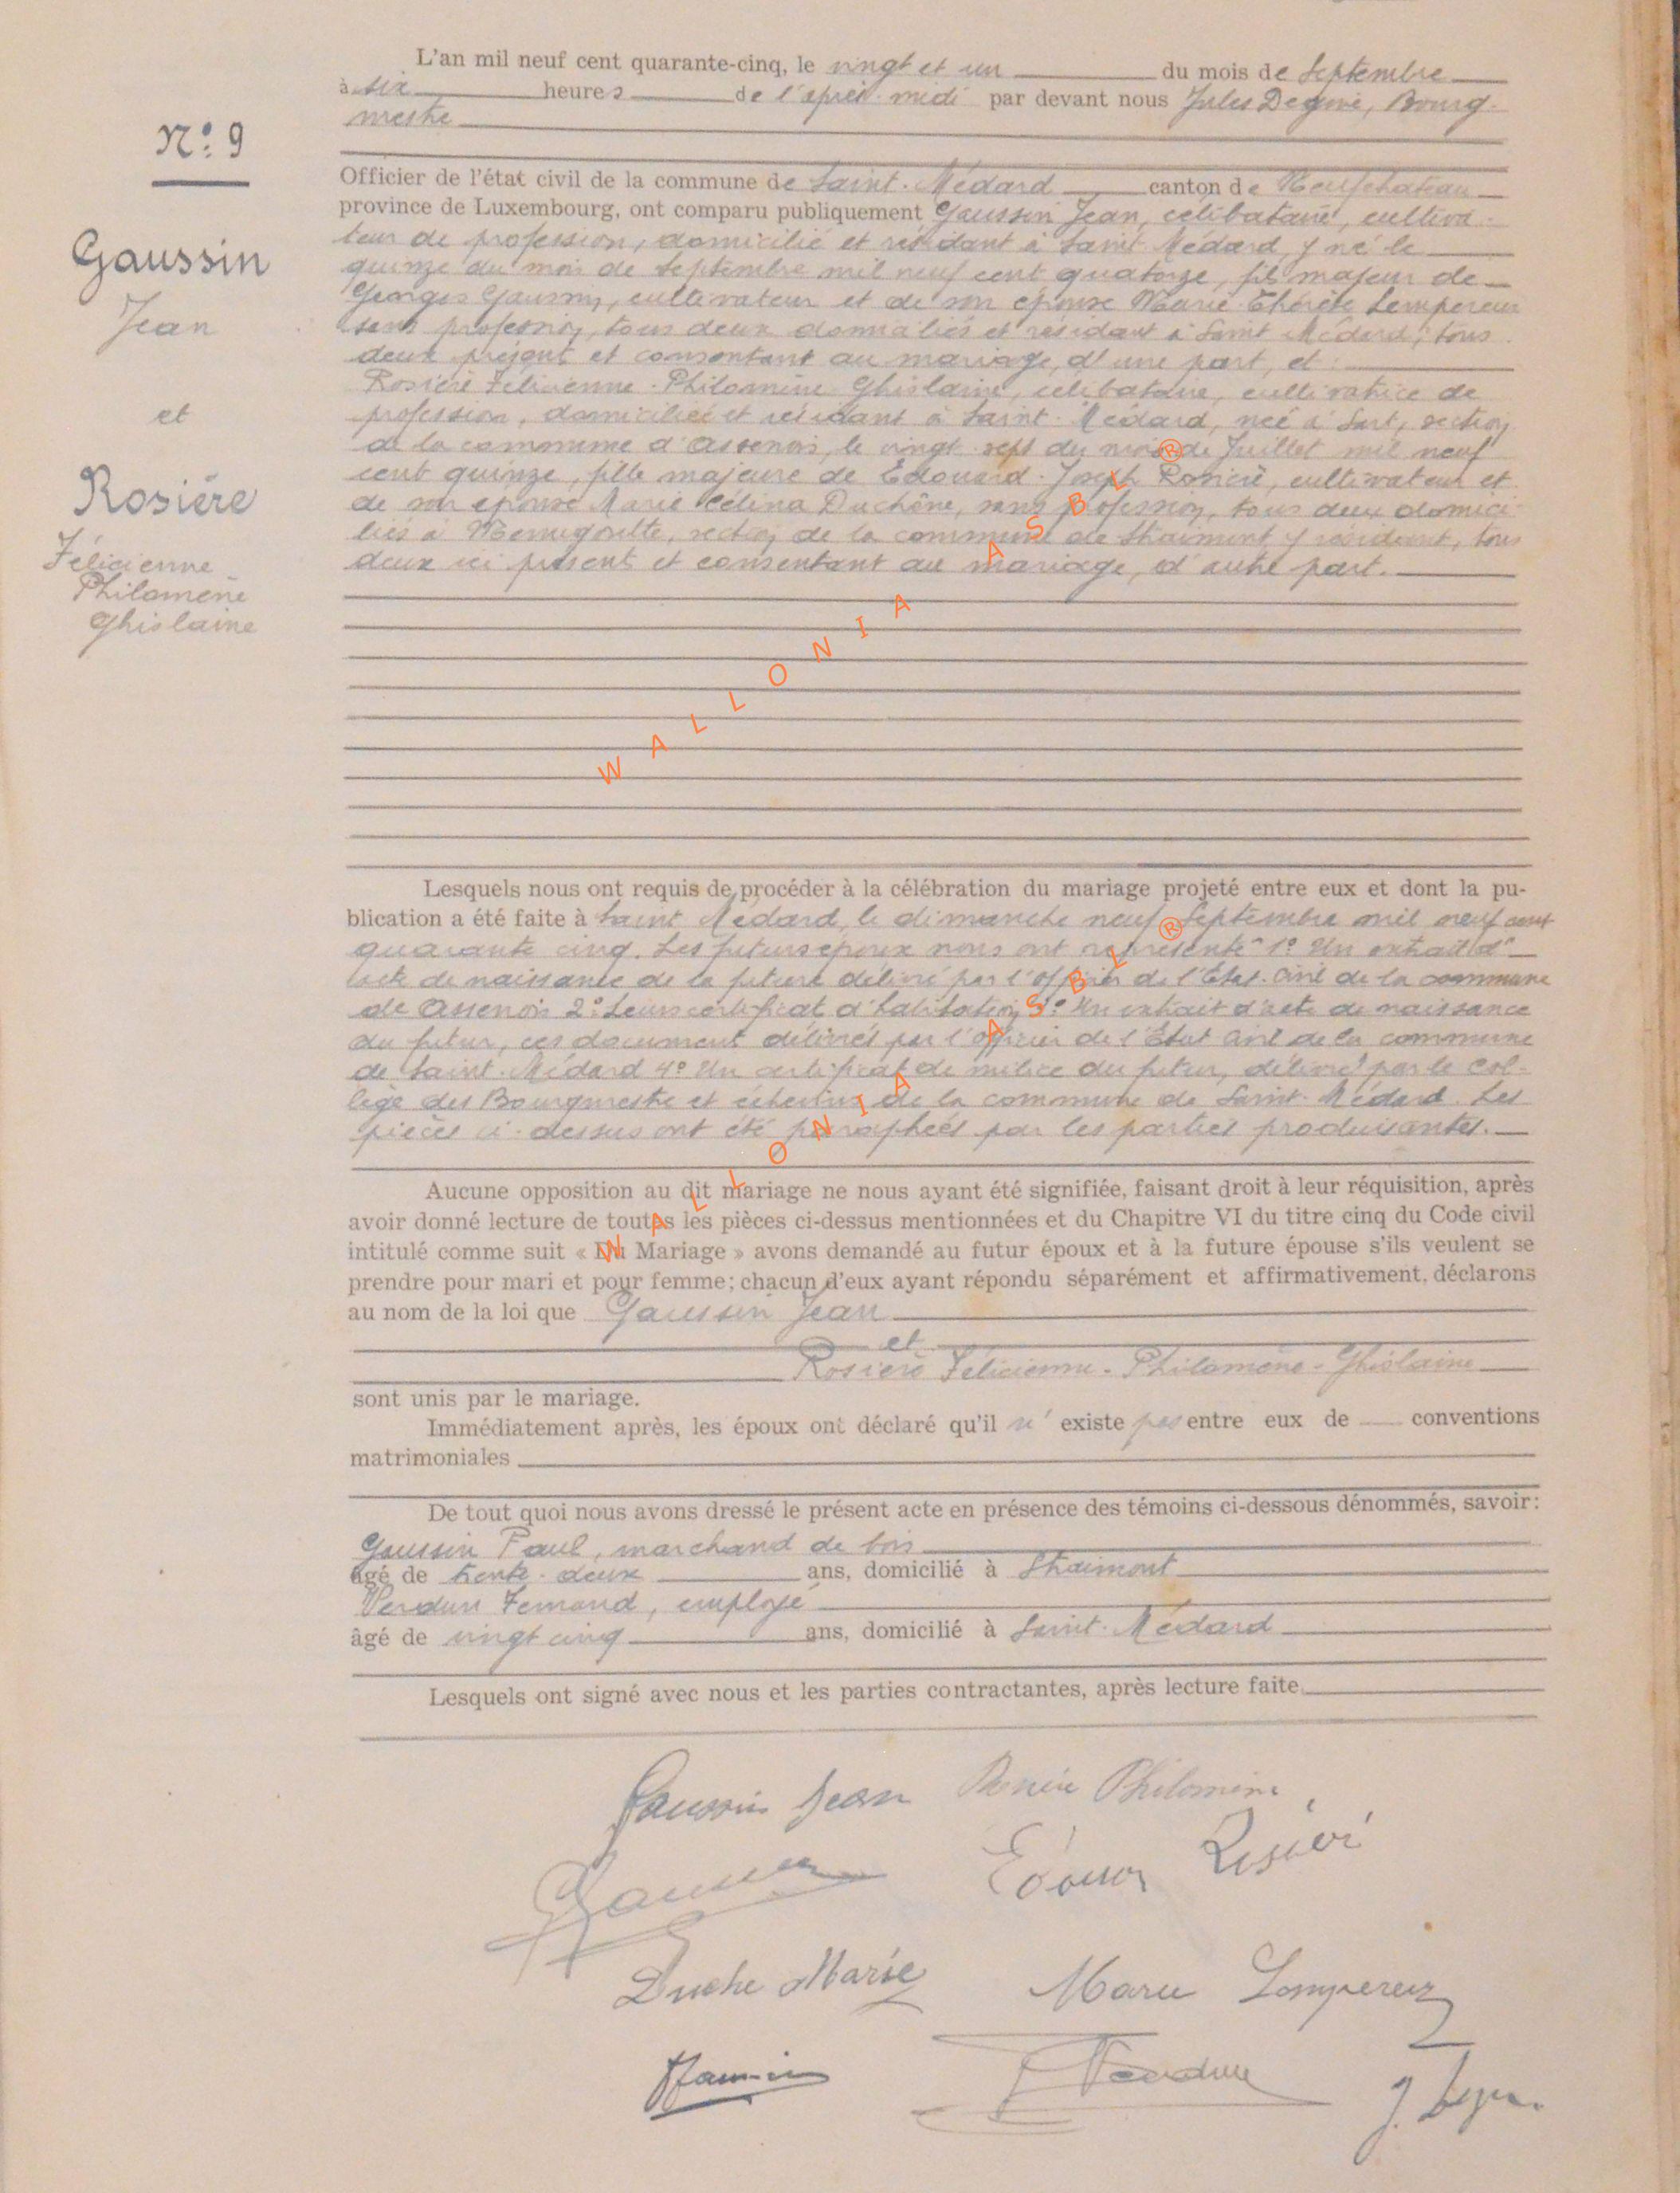 N° 9
Gaussin
Jean
et
Rosière
Félicienne
Philomène
Ghislaine
L'an mil neuf cent quarante-cinq, le vingt et un du mois de Septembre
à six heures de l'après-midi par devant nous Jules Bourg-
mestre
Officier de l'état civil de la commune de Saint-Médard canton de Neufchateau
province de Luxembourg, ont comparu publiquement Gaussin Jean, célibataire, cultiva-
teur de profession, domicilié et résidant à Saint Médard, y né le
quinze du mois de Septembre mil neuf cent quatorze, fils majeur de
Georges Gaussin, cultivateur et de son épouse Marie-Thérèse Lempereur
sans profession, tous deux domiciliés et résidant à Saint Médard, tous
deux présent et consentant au mariage, d'une part, et :
Rosière Félicienne-Philomène Ghislaine, célibataire, cultivatrice de
profession, domiciliée et résidant à Saint-Médard, née à Sart, section
de la commune d'Assenois, le vingt-sept du mois de Juillet mil neuf
cent quinze, fille majeure de Edouard-Joseph Rosière, cultivateur et
de son épouse Marie Célina Duchêne, sans profession, tous deux domici-
liés à Menugoutte, section de la commune de Straimont y résidant, tous
deux ici présent et consentant au mariage, d'autre part.
WALLONIA ASBL ®
Lesquels nous ont requis de procéder à la célébration du mariage projeté entre eux et dont la pu-
blication a été faite à Saint Médard, le dimanche neuf Septembre mil neuf cent
quarante cinq. Les futurs époux nous ont représenté 1° Un extrait d'
acte de naissance de la future délivré par l'officier de l'Etat-Civil de la commune
de Assenois 2° Leurs certificat d'habitation 3° Un extrait d'acte de naissance
du futur, ces document délivrés par l'officier de l'Etat Civil de la commune
de Saint-Médard 4° Un certificat de milice du futur, délivré par le Col-
lège des Bourgmestre et échevins de la commune de Saint-Médard. Les
pièces ci-dessus ont été paraphées par les parties produisantes.
WALLONIA ASBL ®
Aucune opposition au dit mariage ne nous ayant été signifiée, faisant droit à leur réquisition, après
avoir donné lecture de toutes les pièces ci-dessus mentionnées et du Chapitre VI du titre cinq du Code civil
intitulé comme suit « Du Mariage » avons demandé au futur époux et à la future épouse s'ils veulent se
prendre pour mari et pour femme; chacun d'eux ayant répondu séparément et affirmativement, déclarons
au nom de la loi que Gaussin Jean
et
Rosière Félicienne-Philomène-Ghislaine
sont unis par le mariage.
Immédiatement après, les époux ont déclaré qu'il n' existe pas entre eux de conventions
matrimoniales
De tout quoi nous avons dressé le présent acte en présence des témoins ci-dessous dénommés, savoir:
Gaussin Paul, marchand de bois
âgé de trente-deux ans, domicilié à Straimont
Verdun Fernand, employé
âgé de vingt cinq ans, domicilié à Saint-Médard
Lesquels ont signé avec nous et les parties contractantes, après lecture faite
Gaussin Jean Rosière Philomène
Gaussin Rosière
Duche Marie Marie Lempereur
Gaussin Verdun